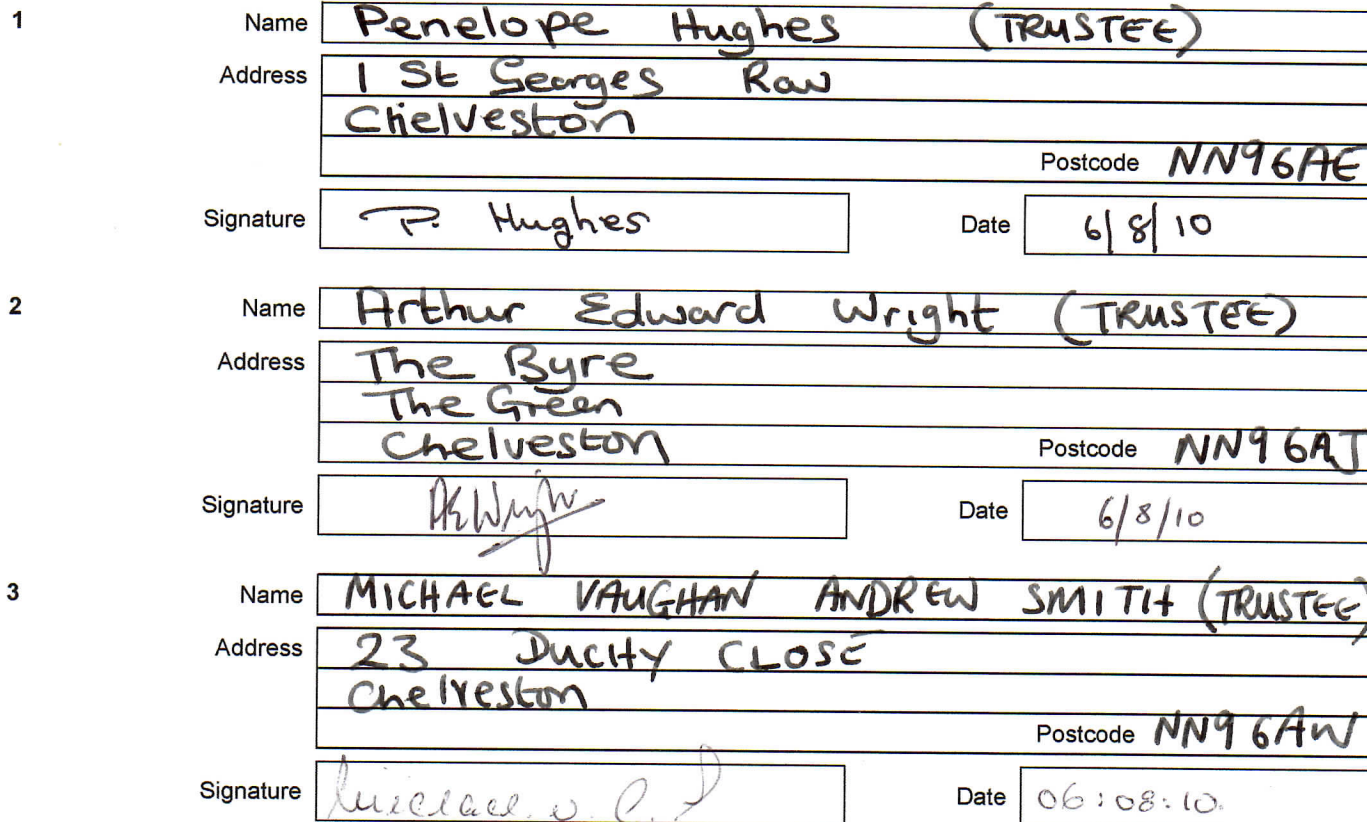 1 Name Penelope Hughes (TRUSTEE)
Address 1 St Georges Row
Chelveston
Postcode NN96AE
Signature P. Hughes Date 6/8/10
2 Name Arthur Edward Wright (TRUSTEE)
Address The Byre
The Green
Chelveston Postcode NN96AJ
Signature AEWright Date 6/8/10
3 Name MICHAEL VAUGHAN ANDREW SMITH (TRUSTEE)
Address 23 DUCHY CLOSE
Chelveston
Postcode NN96AW
Signature Date 06:08:10.